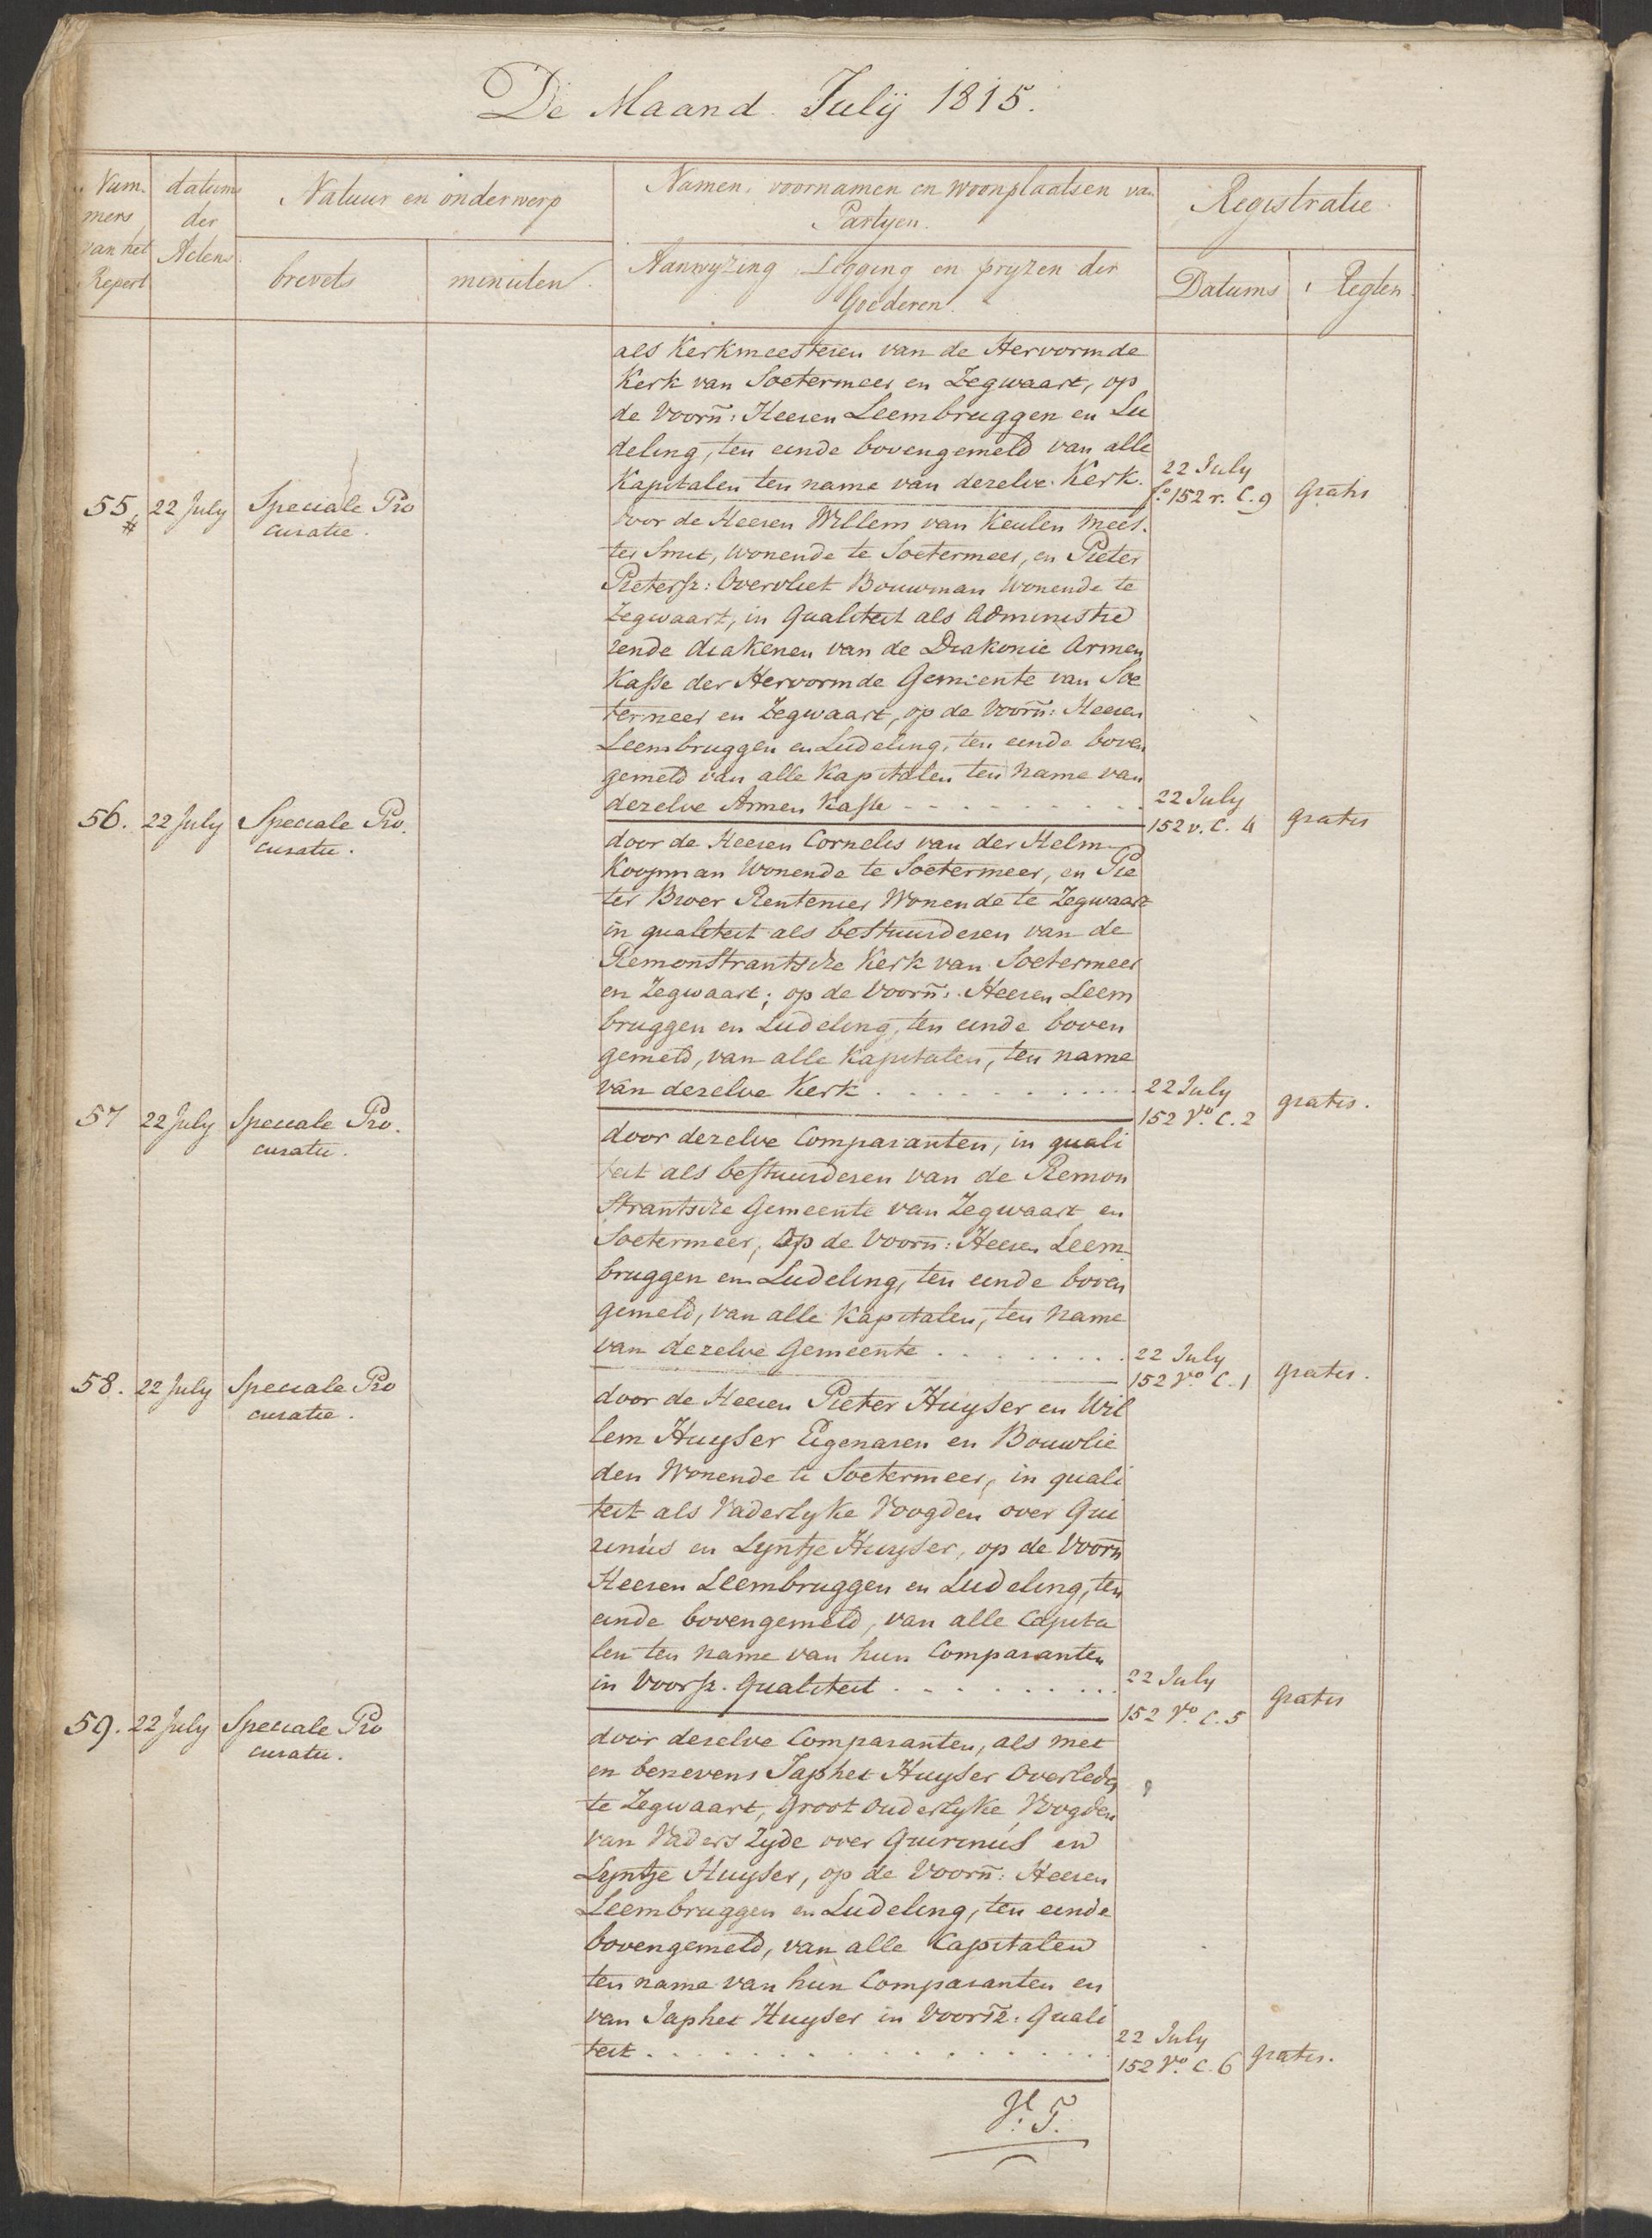 De Maand Julij 1815.
Num-
mers
van het
Repert
datums
der
Actens.
Natuur en onderwerp
brevets
minuten.
Namen, voornamen en woonplaatsen van
Partyen.
Aanwyzing, Legging en pryzen der
Goederen.
Registratie
Datums
Regten.
als Kerkmeesteren van de Hervormde
Kerk van Soetermeer en Zegwaart, op
de Voorn̄: Heeren Leembruggen en Lu
deling, ten einde bovengemeld van alle
Kapitalen ten name van dezelve Kerk.
22 July
fo. 152 r. C. 9
Gratis
55.
22 July
Speciale Pro
curatie.
door de Heeren Willem van Keulen Mees-
ter Smit, Wonende te Soetermeer, en Pieter
Pietersz: Overvliet Bouwman Wonende te
Zegwaart, in Qualiteit als Administre
rende diakenen van de Diakonie Armen
Kasse der Hervormde Gemeente van Soe
termeer en Zegwaart, op de Voorn̄: Heeren
Leembruggen en Ludeling, ten einde boven
gemeld van alle Kapitalen ten name van
dezelve Armen Kasse - - - - - - - - -
22 July
152 v. C. 4
gratis
56.
22 July
Speciale Pro.
curatie.
door de Heeren Cornelis van der Helm
Koopman Wonende te Soetermeer, en Pie
ter Broer Rentenier Wonende te Zegwaart
in qualiteit als bestuurderen van de
Remonstrantsche Kerk van Soetermeer
en Zegwaart; op de Voorn̄: Heeren Leem
bruggen en Ludeling, ten einde boven
gemeld, van alle Kapitalen, ten name
van dezelve Kerk . . . . . . . . . .
22 July
152 Vo. C. 2
gratis.
57
22 July
Speciale Pro.
curatie.
door dezelve Comparanten, in quali
teit als bestuurderen van de Remon
strantsche Gemeente van Zegwaart en
Soetermeer, Op de Voorn̄: Heeren Leem-
bruggen en Ludeling, ten einde boven
gemeld, van alle Kapitalen, ten name
van dezelve Gemeente . . . . . . . .
22 July
152 Vo. C. 1
gratis.
58.
22 July
Speciale Pro
curatie.
door de Heeren Pieter Huyser en Wil
lem Huyser Eigenaren en Bouwlie
den Wonende te Soetermeer, in quali
teit als Vaderlyke Voogden over Qui
rinus en Lyntje Huyser, op de Voorn̄
Heeren Leembruggen en Ludeling, ten
einde bovengemeld, van alle Capita
len ten name van hun Comparanten
in Voorsz. Qualiteit . . . . . . . . .
22 July
152 Vo. C. 5
Gratis
59.
22 July
Speciale Pro
curatie.
door deselve Comparanten, als met
en benevens Japhet Huyser Overleden
te Zegwaart, Groot Ouderlyke Voogden
van Vaders Zyde over Quirinus en
Lyntje Huyser, op de Voorn̄: Heeren
Leembruggen en Ludeling, ten einde
bovengemeld, van alle Capitalen
ten name van hun Comparanten en
van Japhet Huyser in Voorsz: Quali
teit . . . . . . . . . . . . . . . . .
22 July
152 Vo. C. 6
gratis.